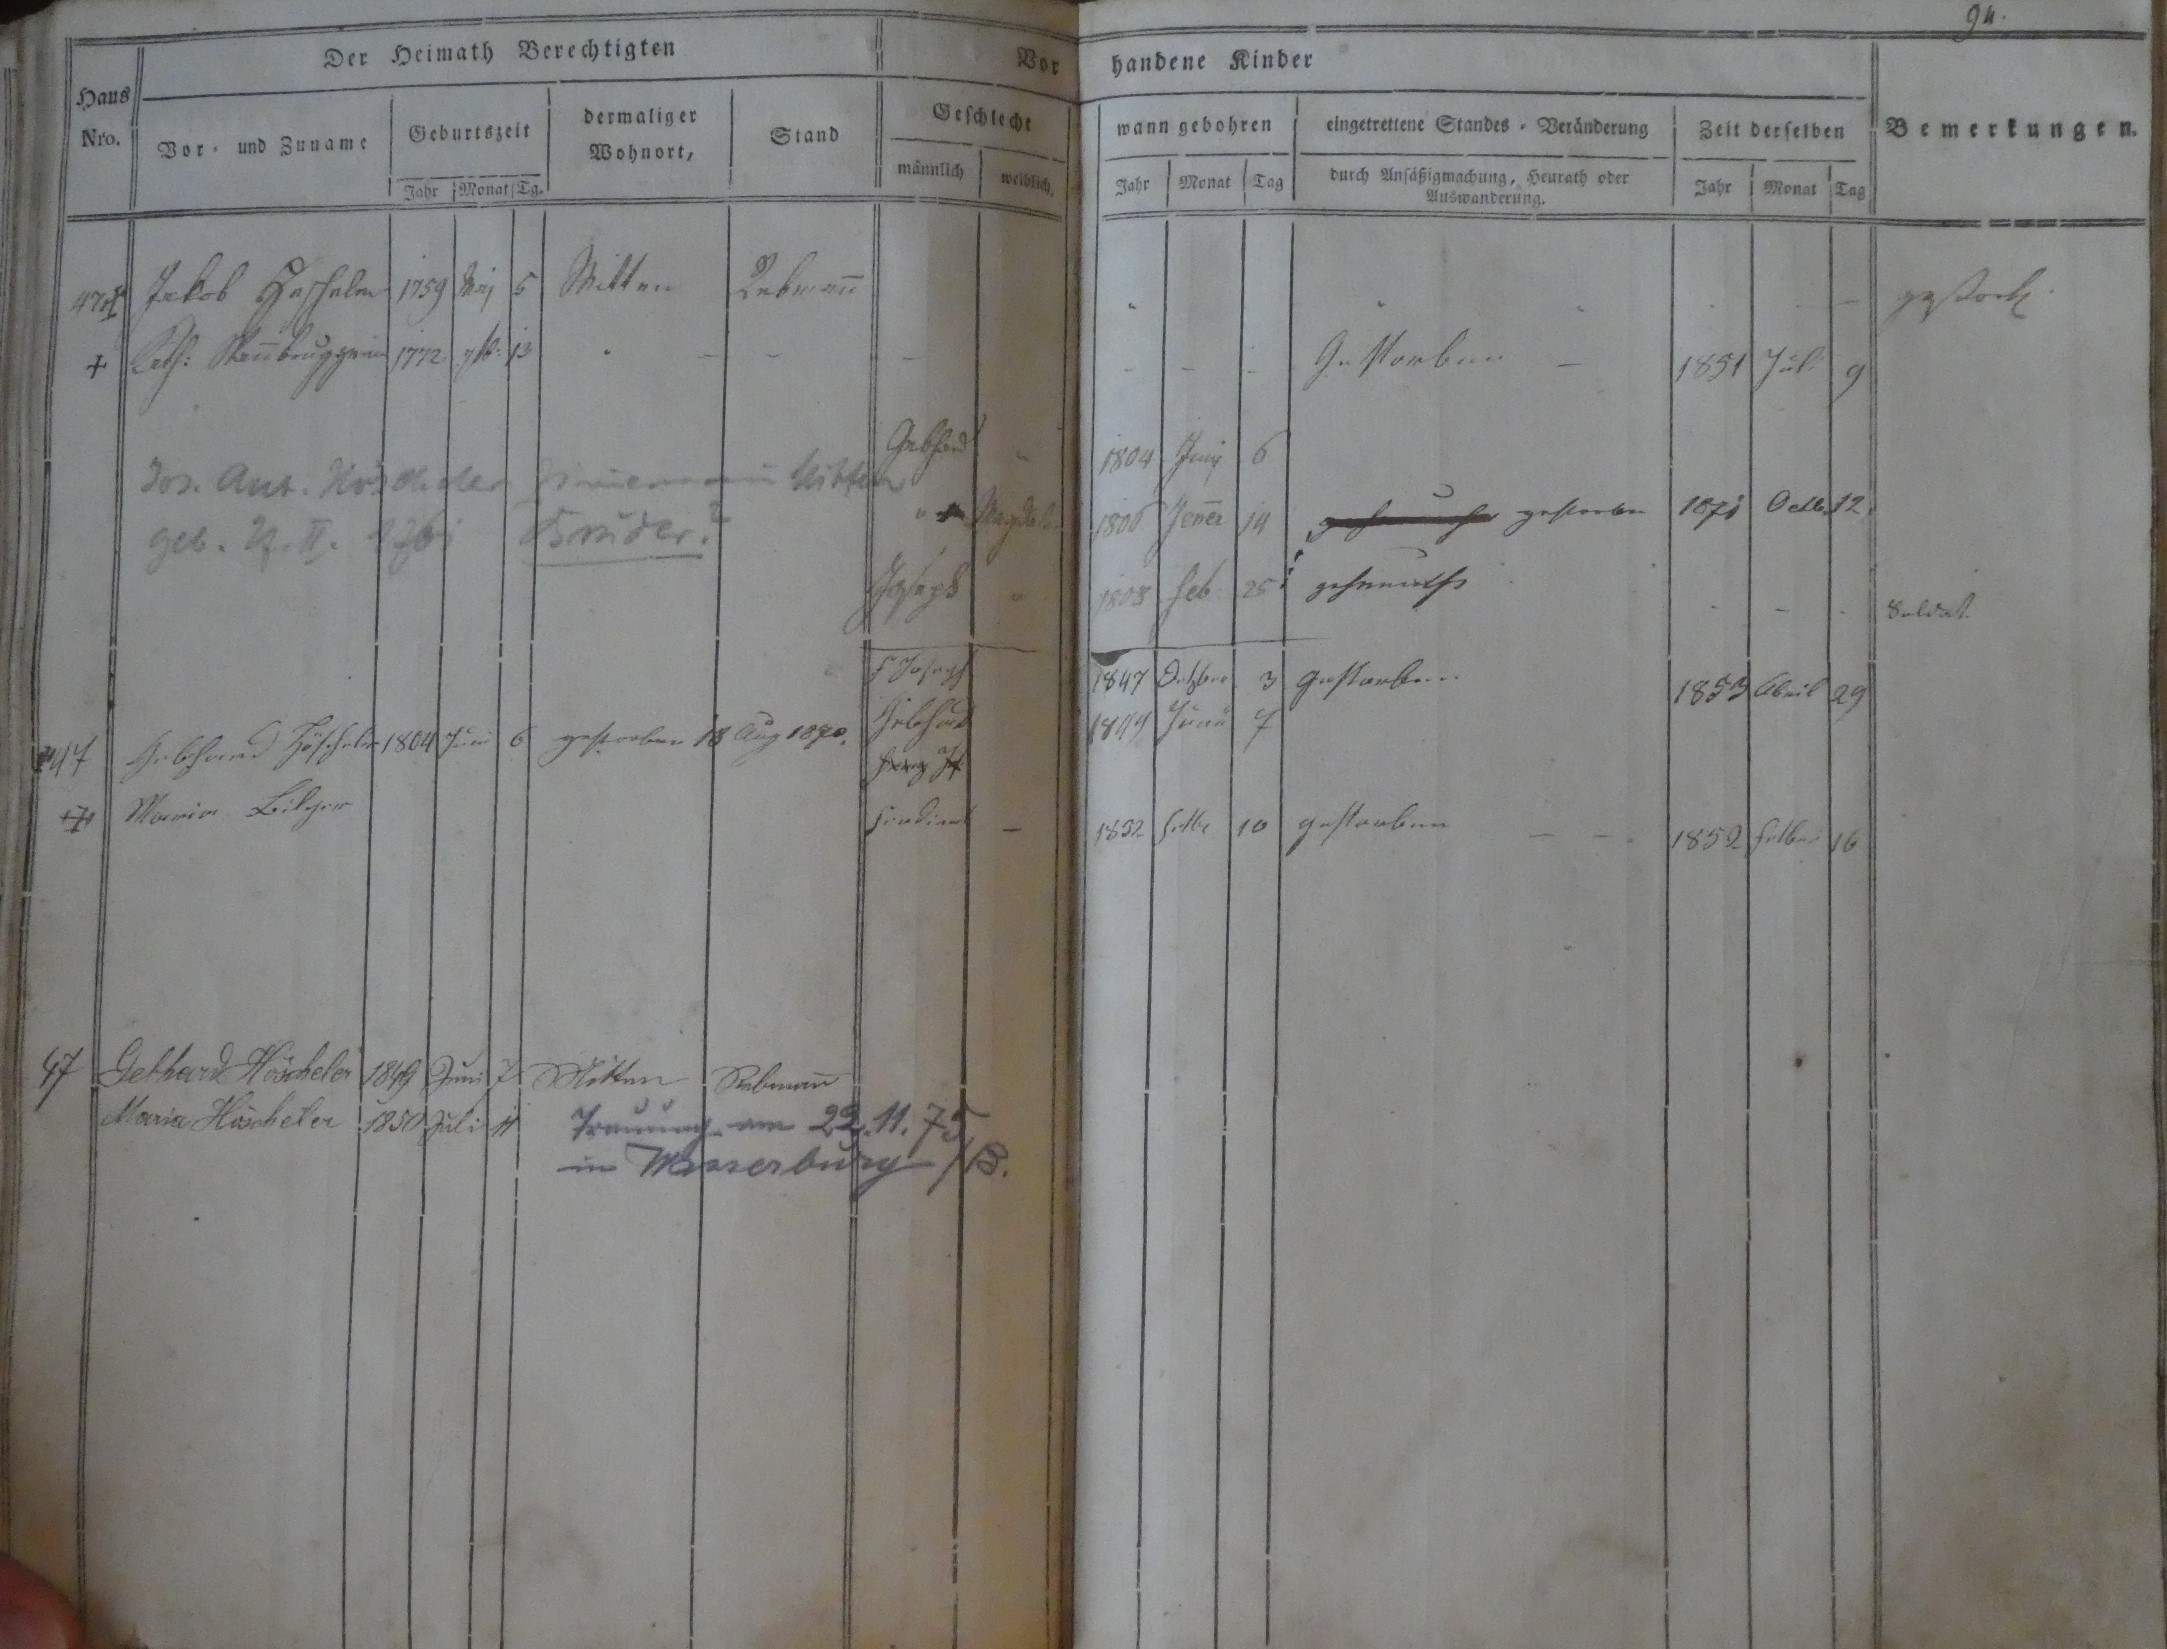 94.
Der Heimath Berechtigten
Vorhandene Kinder
Haus Nro.
Vor- und Zuname
Geburtszeit
dermaliger Wohnort,
Stand
Geschlecht
wann gebohren
eingetrettene Standes-Veränderung
Zeit derselben
Bemerkungen.
Jahr Monat Tg.
männlich weiblich.
Jahr Monat Tag
durch Ansäßigmachung, Heurath oder Auswanderung.
Jahr Monat Tag
47 Jakob 1759 Maj 5 Mitten Rebmann
+ Cath: 1772 13 Gestorben 1851 Juli 9
Gebhard 1804 Juny 6
Jos. Ant. Höscheler Mitten
Magdal 1806 Jener 14 gestorben 1871 Octb. 12.
geb. Bruder?
Joseph 1808 Feb. 25 Soldat.
Joseph 1847 3 gestorben 1853 April 29
Gebhard 1849 Juni 7
47 Gebhard Höscheler 1804 Juni 6 gestorben 18 Aug 1870.
Maria Bilger Ferdinand 1852 10 gestorben 1852 16
47 Gebhard Höscheler 1849 Juni 7 Mitten Rebmann
Maria Höscheler 1850 Juli 11 Trauung am 22.11.75
in Wasserburg/B.